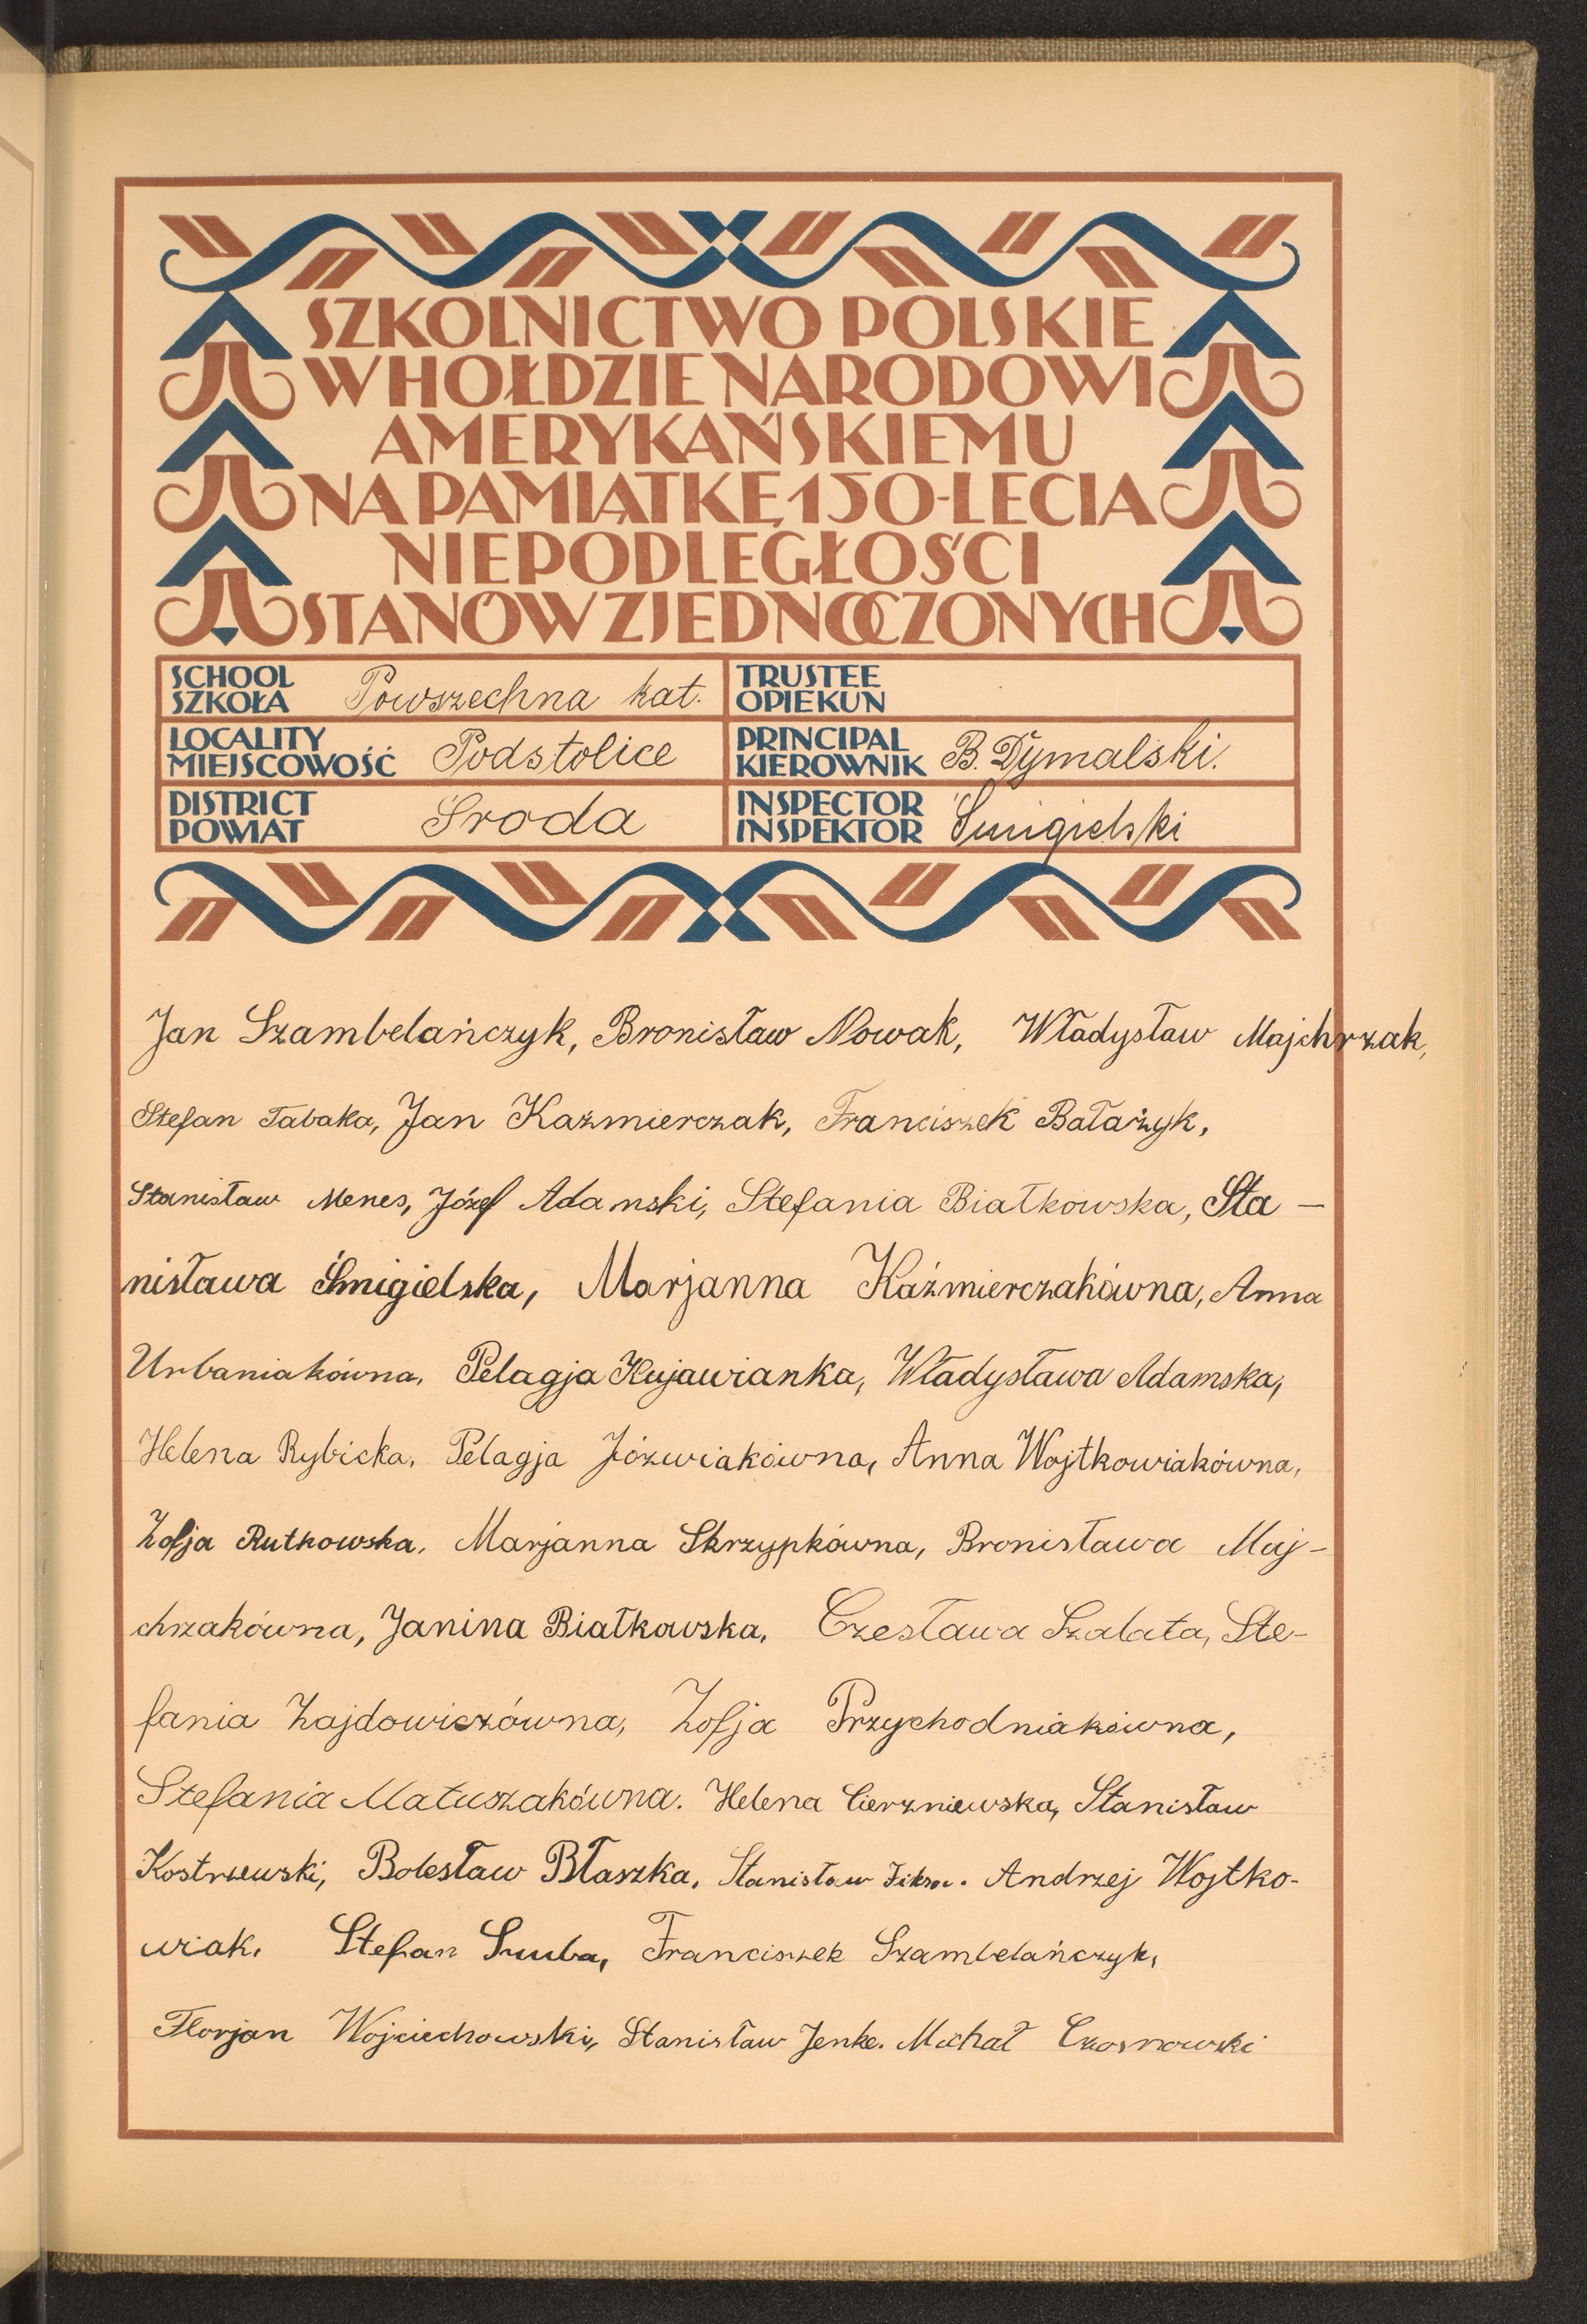 SZKOLNICTWO POLSKIE
W HOŁDZIE NARODOWI
AMERYKAŃSKIEMU
NA PAMIĄTKĘ 150-LECIA
NIEPODLEGŁOŚCI
STANÓW ZJEDNOCZONYCH
SCHOOL
SZKOŁA Powszechna kat.
TRUSTEE
OPIEKUN
LOCALITY
MIEJSCOWOŚĆ Podstolice
PRINCIPAL
KIEROWNIK B. Dymalski.
DISTRICT
POWIAT Środa
INSPECTOR
INSPEKTOR Śmigielski
Jan Szambelańczyk, Bronisław Nowak, Władysław Majchrzak,
Stefan Tabaka, Jan Kaźmierczak, Franciszek Batażyk,
Stanisław Menes, Józef Adamski, Stefania Białkowska, Sta-
nisława Śmigielska, Marjanna Kaźmierczakówna, Anna
Urbaniakówna, Pelagja Kujawianka, Władysława Adamska,
Helena Rybicka, Pelagja Jóźwiakówna, Anna Wojtkowiakówna,
Zofja Rutkowska, Marjanna Skrzypkówna, Bronisława Maj-
chrzakówna, Janina Białkowska, Czesława Szalata, Ste-
fania Zajdowiczówna, Zofja Przychodniakówna,
Stefania Matuszakówna. Helena Cierzniewska, Stanisław
Kostrzewski, Bolesław Błaszka, Stanisław Andrzej Wojtko-
wiak. Stefan Franciszek Szambelańczyk,
Florjan Wojciechowski, Stanisław Jenke. Michał Czosnowski